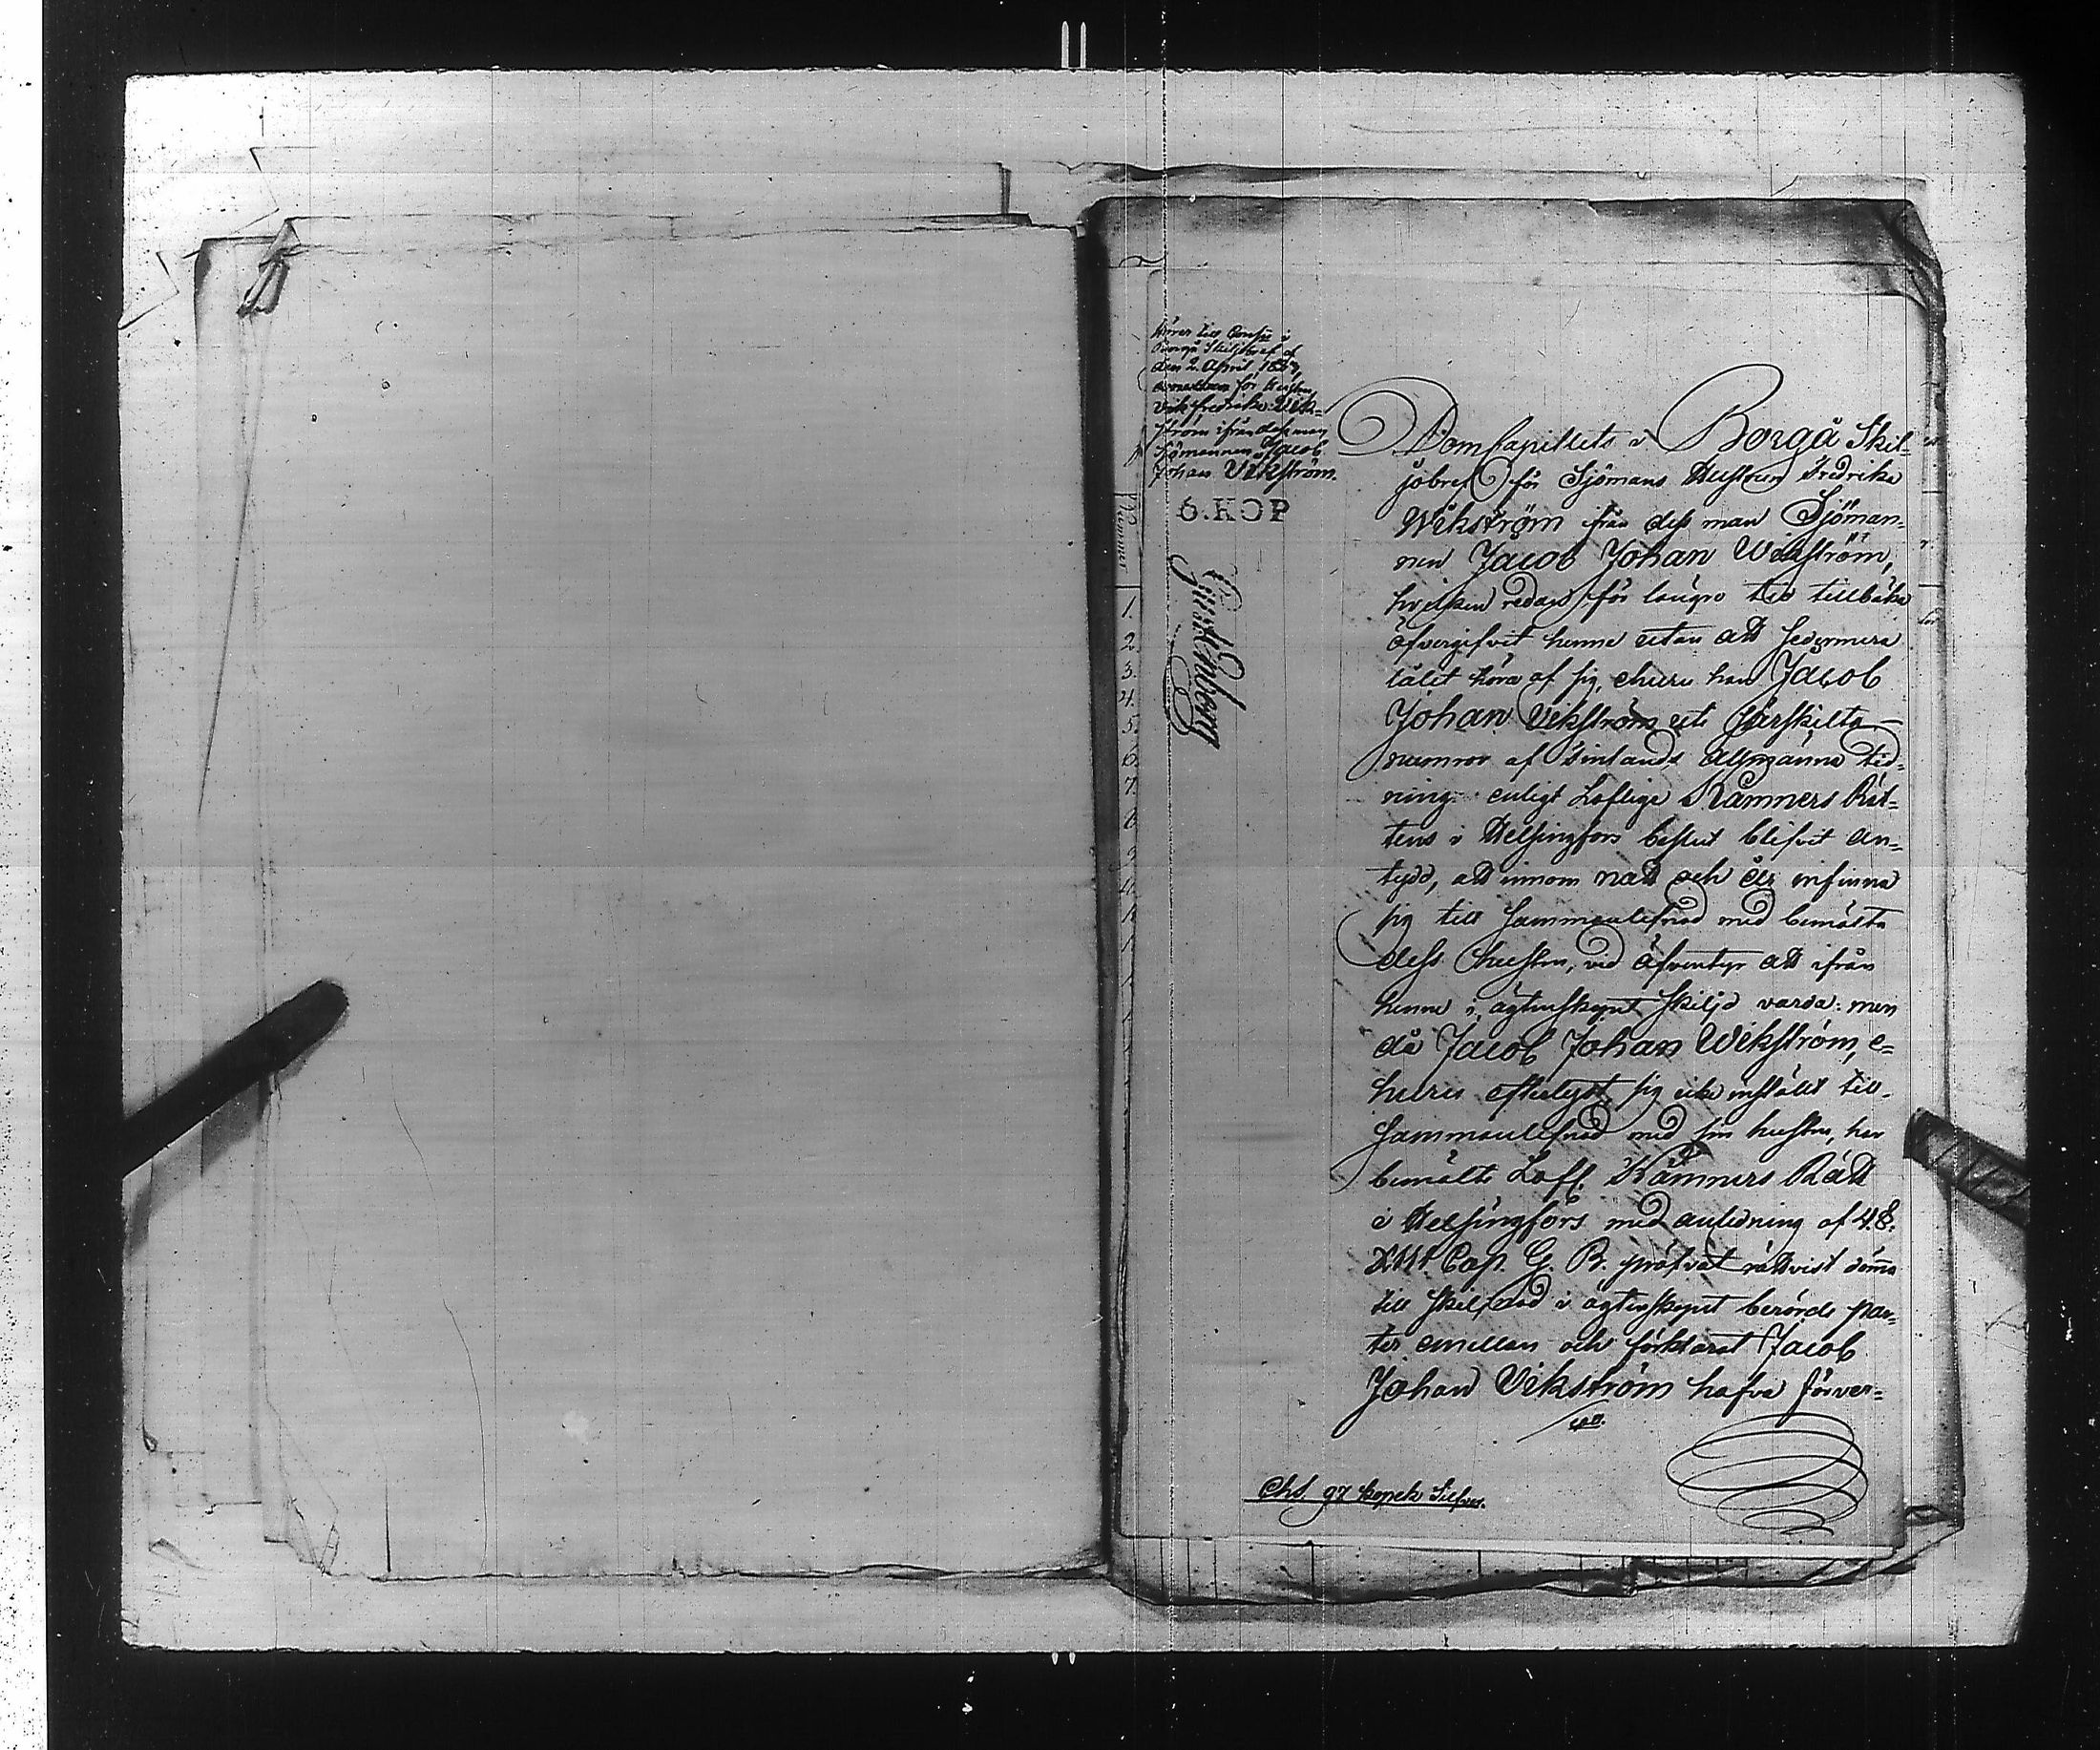 Borgå Skiljobref af
den 2. April
för Hustru
Fredrika Wik=
ström ifrån dess man
Sjömannen Jacob
Johan Vikström.
6. KOP
Gyldenborg
Nummer
1.
2.
3.
4.
5.
6.
7.
8
9
10.
DomCapitlets i Borgå Skil=
jobref för Sjömans Hustrun Fredrika
Wikström från dess man Sjöman=
nen Jacob Johan Wikström,
hvilken redan för längre tid tillbaka
öfvergifvit henne utan att sedermera
låtit höra af sig, churu han Jacob
Johan Vikström uti särskilta
numror af Finlands Allmänna Tid=
ning enligt Loflige Kämners Rät=
tens i Helsingfors beslut blifvit an=
tydd, att innom natt och år infinna
sig till sammanlefnad med bemälta
dess hustru, vid äfventyr att ifrån
henne i ägtenskapet skiljd varda: men
då Jacob Johan Wikström, e=
huru efterlyst, sig icke inställt till
sammanlefnad med sin hustru, har
bemälte Lofl. Kämners Rätt
i Helsingfors med anledning af 4.§.
XIII Cap. G. B. pröfvat rättvist döma
till skilnad i ägtenskapet berörde par=
ter emellan och förklarat Jacob
Johan Vikström hafva förver=
Chs. 97 kopek Silfver.